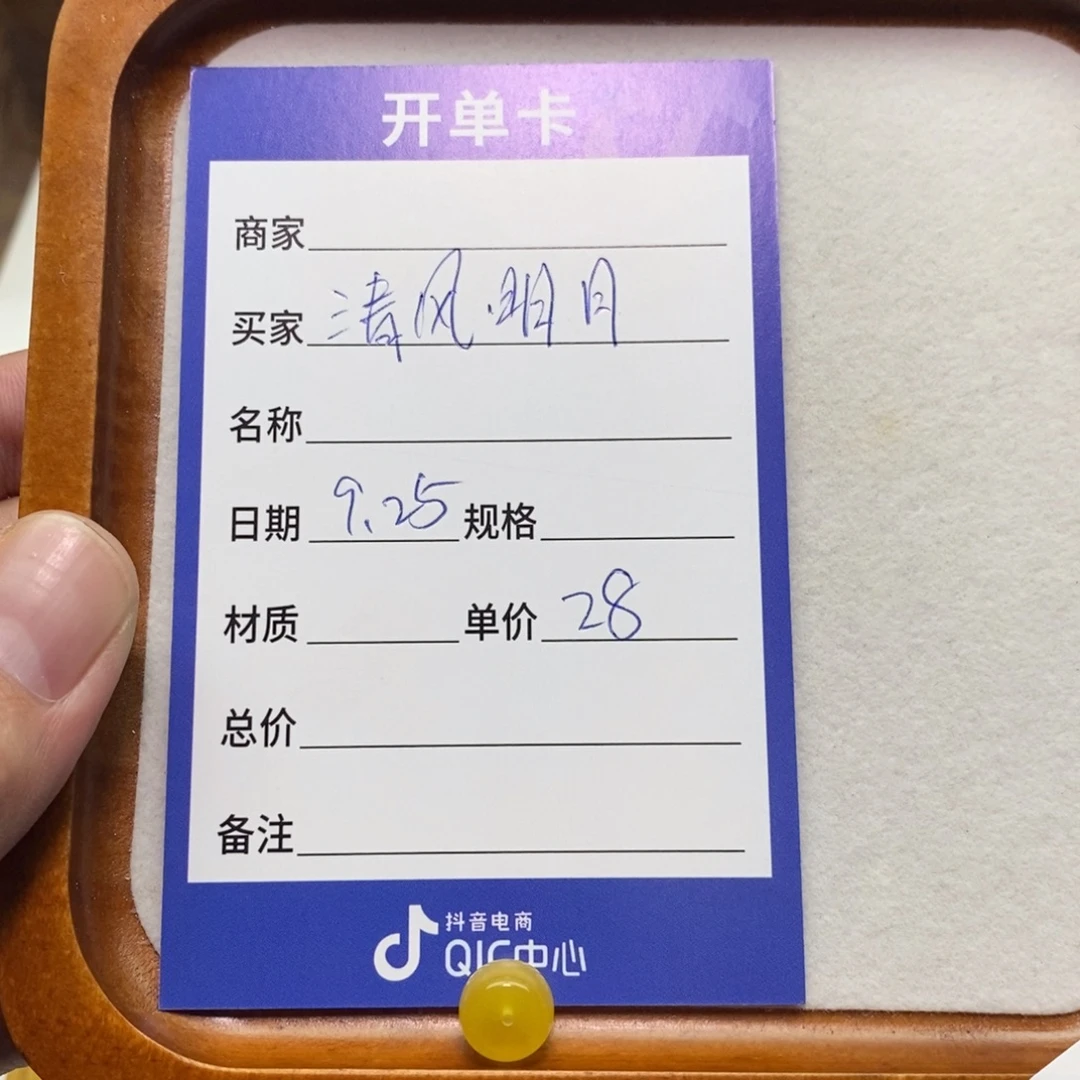 开单卡
商家
买家 清风.明月
名称
日期 9.25 规格
材质 单价 28
总价
备注
抖音电商
QIC中心